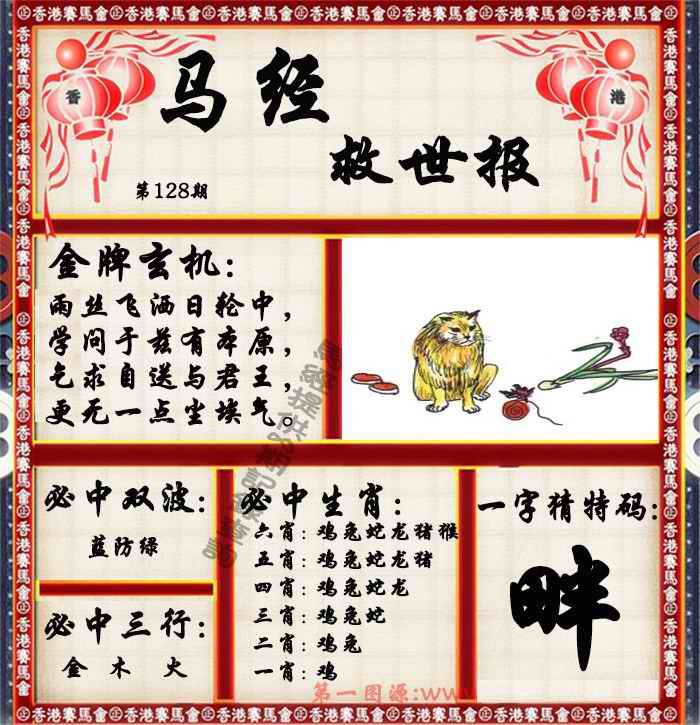 香港賽馬會
香
港
马经
救世报
第128期
金牌玄机：
雨丝飞洒日轮中，
学问于兹有本原，
乞求自送与君王，
更无一点尘埃气。
必中双波：
蓝防绿
必中三行：
金 木 火
必中生肖：
六肖：鸡兔蛇龙猪猴
五肖：鸡兔蛇龙猪
四肖：鸡兔蛇龙
三肖：鸡兔蛇
二肖：鸡兔
一肖：鸡
一字猜特码：
畔
第一图源:www